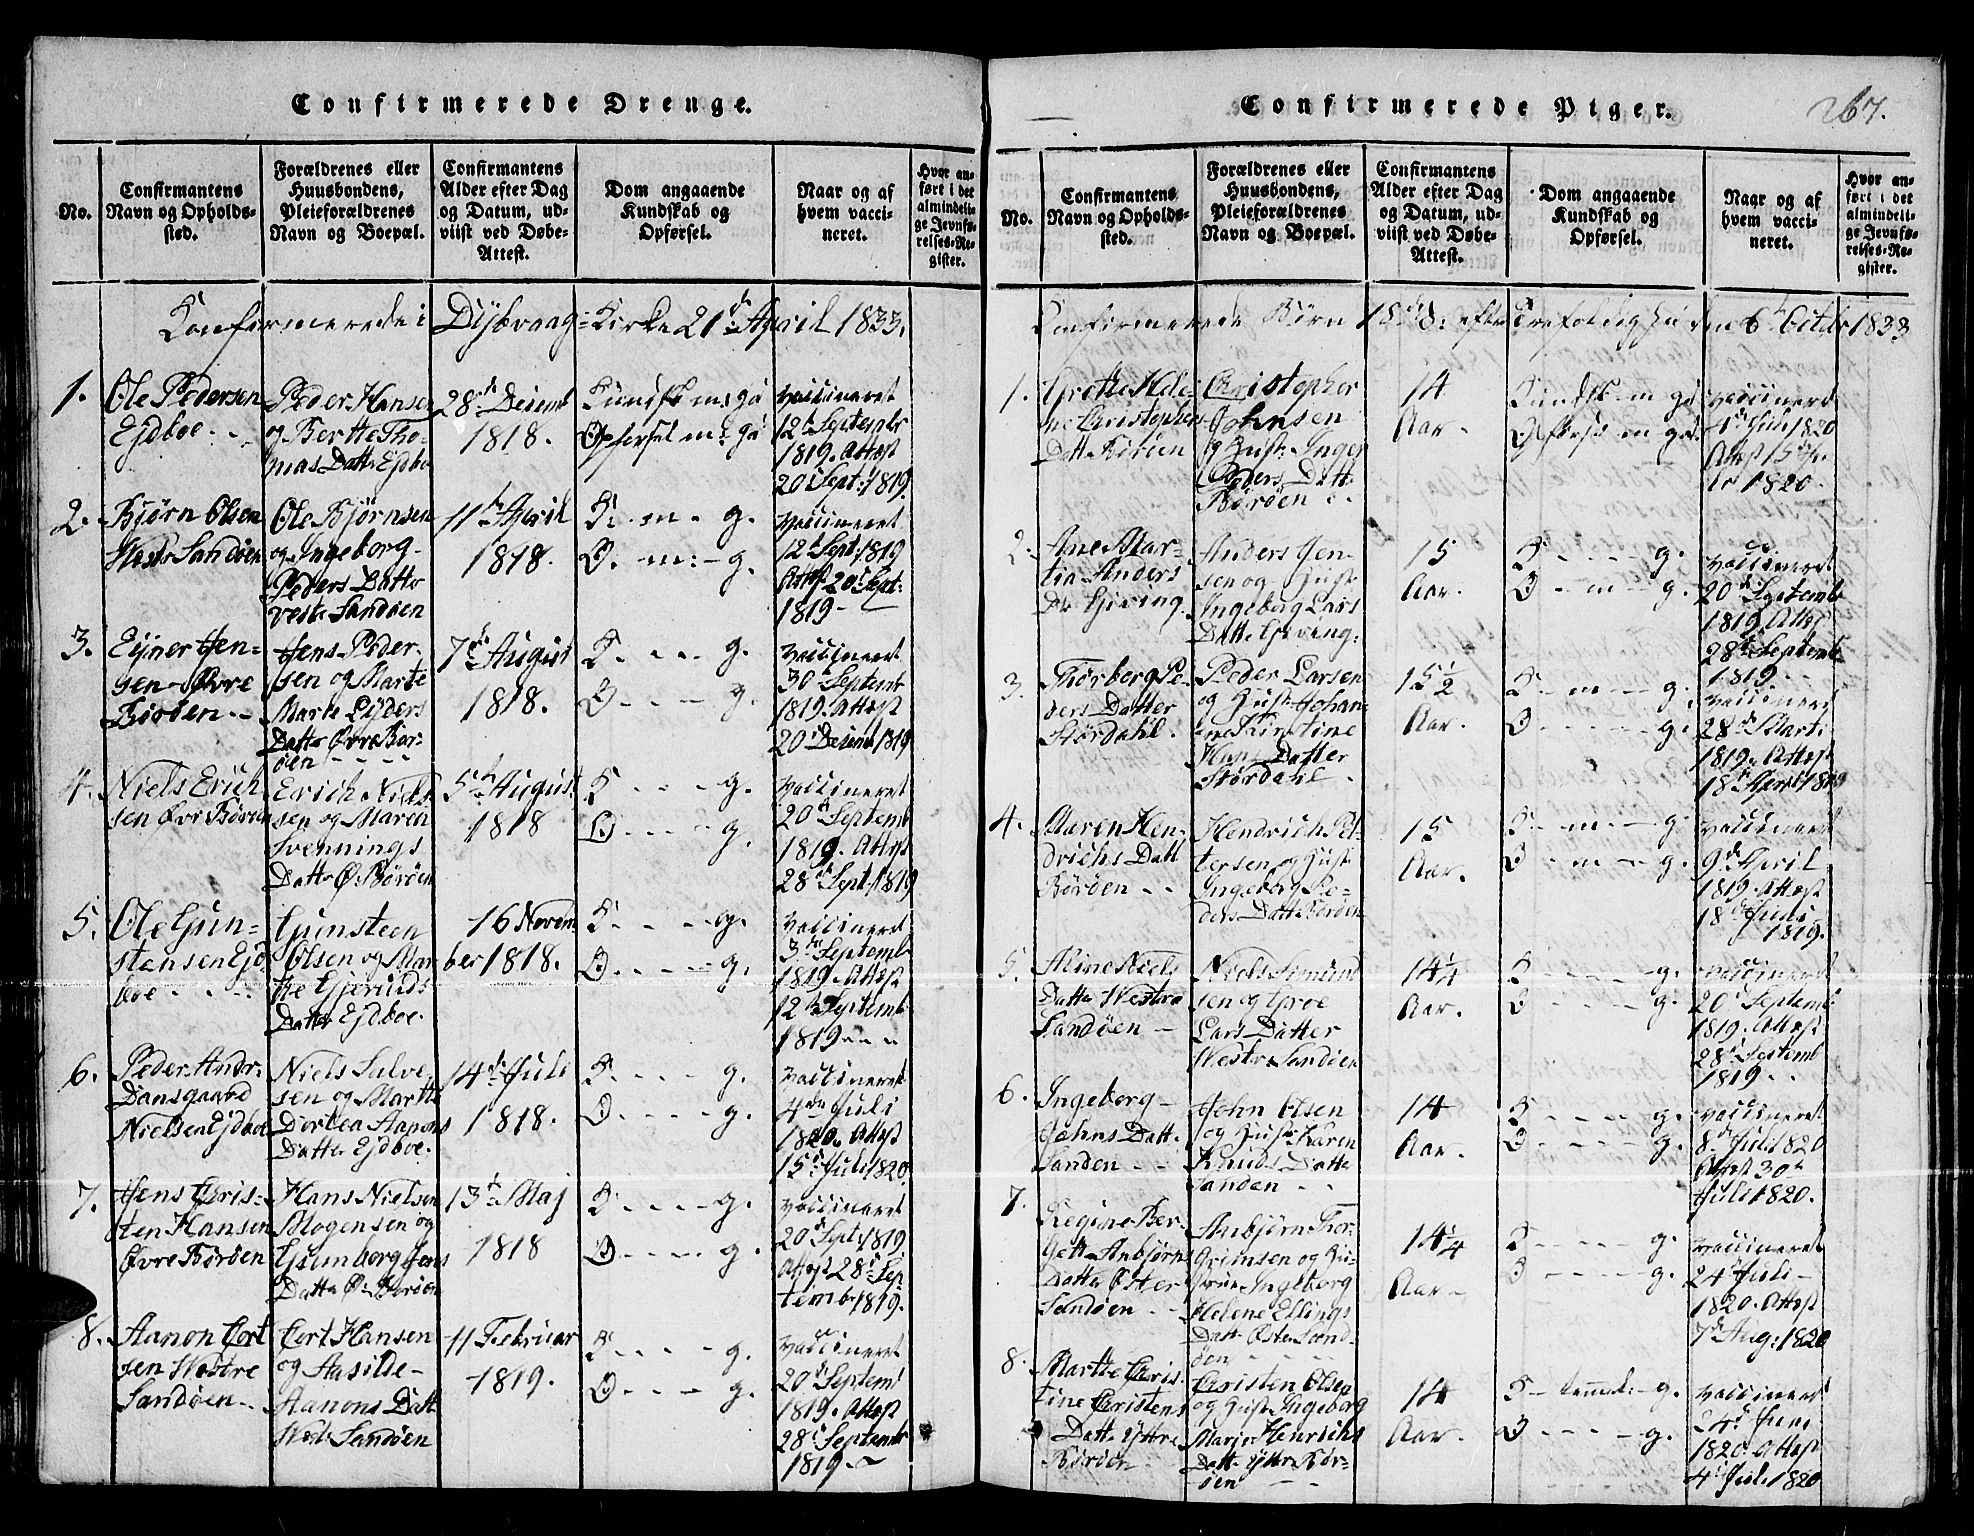 Confirmerede Drenge.
No.
Confirmantens
Navn og Opholds-
sted.
Forældrenes eller
Huusbondens,
Pleieforældrenes
Navn og Boepæl.
Confirmantens
Alder efter Dag
og Datum, ud-
viist ved Døbe-
Attest.
Dom angaaende
Kundskab og
Opførsel.
Naar og af
hvem vacci-
neret.
Hvor an-
ført i det
almindeli-
ge Jevnfø-
relses-Re-
gister.
Konfirmerede i Dybvaag-Kirke 21d April 1833.
1.
Ole Pedersen
Ejdboe
Peder Hansen
og Berthe Tho-
mas Datt. Ejdbo
28d Decemb
1818.
Kundsk. m: gd
Opførsel m: gd
vaccineret
12t Septembr
1819. Attest
20d Sept: 1819.
2.
Bjørn Olsen
Vestr Sandøen
Ole Bjørnsen
og Ingeborg
Peders Datter
Vestr Sandøen
11t April
1818.
K. - m. - g.
O. - m: - g.
vaccineret
12t Sept: 1819
Attest 20d Sept:
1819 -
3.
Ejner Jen-
sen Øvre
Børøen
Jens Peder
sen og Marte
Marie Ejders
Datter Øvre Bør-
øen
7d August
1818.
K. - - - g.
O. - - - g.
vaccineret
30 Septemb
1819. Attest
20d Decemb 1819
4.
Niels Erich
sen Øvr Børøen
Erich Niels
sen og Maren
Svennings
Datter Ø. Børøen
5t August
1818
K - - - g.
O - - - g.
vaccineret
20d Septemb
1819. Attest
28d Sept: 1819
5.
Ole Gun-
stensen Ejd-
boe
Gunsteen
Olsen og Mar
the Gjeruds
Datter Ejdboe.
16 Novem
ber 1818.
K - - - g.
O - - - g.
vaccineret
3die Septemb
1819. Attest
12t Septemb
1819
6.
Peder Andr.
Dansgaard
Nielsen Ejdboe
Niels Salve-
sen og Marthe
Dorthea Aanons
Datter Ejdboe.
14de Juli
1818.
K - - - g.
O - - - g.
vaccineret
4de Juli
1820. Attest
15d Juli 1820.
7.
Jens Cris-
ten Hansen
Øvre Børøen
Hans Nielsen
Mogensen og
Gunborg Jens
Datter Ø. Børøen
13t Maj
1818
K. - - - g.
O - - - g.
vaccineret
20d Sept: 1819
Attest 28d Sep
temb. 1819.
8.
Aanon Cort
sen Vestre
Sandøen
Cort Hansen
og Aasilde
Aanons Datt
Vestr Sandøen
11 Februar
1819.
K - - - g.
O - - - g.
vaccineret
20d Septemb
1819. Attest
28d Septembr
1819
Confirmerede Piger.
267.
No.
Confirmantens
Navn og Opholds-
sted.
Forældrenes eller
Huusbondens,
Pleieforældrenes
Navn og Boepæl.
Confirmantens
Alder efter Dag
og Datum, ud-
viist ved Døbe-
Attest.
Dom angaaende
Kundskab og
Opførsel.
Naar og af
hvem vacci-
neret.
Hvor an-
ført i det
almindeli-
ge Jevnfø-
relses-Re-
gister.
Confirmerede Børn 18de S: efter Trefoldighed den 6t Octbr 1833
1.
Grethe Hele
ne Christophers
Datt. Børøen
Christopher
Johnsen
og Hust. Inger
Peders Datt.
Børøen
14
Aar.
Kundsk. m gd
Opførsel m gd.
vaccineret
4d Juli 1820
Attest 15d Ju-
li 1820.
2.
Ane Mar-
tea Anders
Dtr Gjeving.
Anders Jen-
sen og Hust.
Ingeborg Lars
Datt. Gjeving.
15
Aar.
K - - - g.
O - m - g.
vaccineret
20d Septemb
1819 Attest
28d Septemb
1819
3.
Thorborg Pe-
ders Datter
Størdahl.
Peder Larsen
og Hust. Johan-
ne Kirstine
Datter
Størdahl.
15 1/2
Aar.
K - m - g.
O - - - g.
vaccineret
28d Marti
1819. Attest
18d April 1819
4.
Maren Hen-
drichs Datt
Børøen
Hendrich Pet-
tersen og Hust.
Ingeborg Pe-
ders Datt. Børøen
15
Aar.
K - m - g.
O - m - g.
vaccineret
9de April
1819. Attest
18d Juli
1819.
5.
Aline Niels
Datter Vestre
Sandøen
Niels Simund
sen og Groe
Lars Datter
Vestre Sandøen
14 1/4
Aar.
K - - - g.
O - - - g.
vaccineret
20d Septemb
1819. Attest
28d Septemb
1819
6.
Ingeborg
Johns Datt.
Sanden
John Olsen
og Hust. Karen
Knuds Datter
Sanden
14
Aar.
K - - - g.
O - - - g.
vaccineret
8d Juli 1820
Attest 30d
Juli 1820.
7.
Regine Ber-
gette Anbjørns
Datter Øster
Sandøen
Anbjørn Thor-
grimsen og Hu-
strue Ingeborg
Helene Ellings
Datt. Østr Sand-
øen
14 1/4
Aar
K - - - g.
O - - - g.
vaccineret
24d Juli
1820. Attest
7d Aug: 1820
8.
Marthe Chris
tine Christens
Datt. Yttre
Børøen
Christen Olsen
og Hust. Ingeborg
Marie Henrichs
Datt. Yttr Bør-
øen
14
Aar.
K - temmel: g.
O - - - g.
vaccineret
24d Juni
1820. Attest
4d Juli 1820